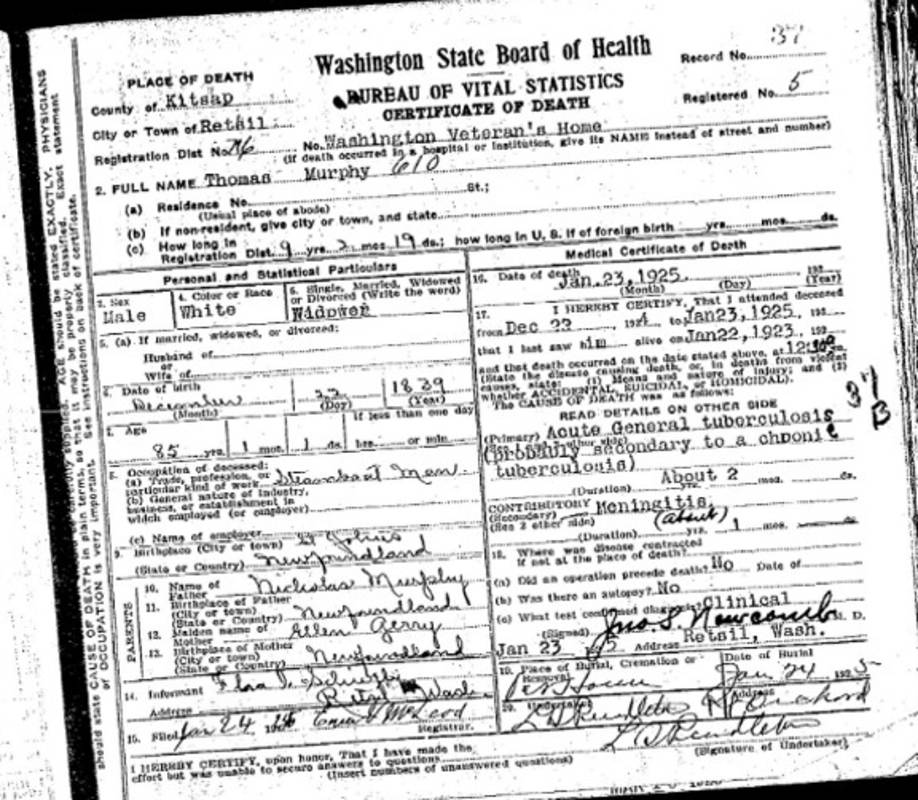 37
Washington State Board of Health
Record No.
PLACE OF DEATH
BUREAU OF VITAL STATISTICS
County of Kitsap
CERTIFICATE OF DEATH
Registered No. 5
City or Town of Retsil
Registration Dist No. 26 No. Washington Veteran's Home
(If death occurred in a hospital or institution, give its NAME instead of street and number)
2. FULL NAME Thomas Murphy 610
(a) Residence No. St.;
(Usual place of abode)
(b) If non-resident, give city or town, and state
(c) How long in
Registration Dist. 9 yrs. 2 mos. 19 ds.; how long in U. S. if of foreign birth yrs. mos. ds.
Personal and Statistical Particulars
3. Sex
Male
4. Color or Race
White
5. Single, Married, Widowed
or Divorced (Write the word)
Widower
5. (a) If married, widowed, or divorced:
Husband of
or
Wife of
6. Date of birth
December 22 1839
(Month) (Day) (Year)
7. Age
If less than one day
85 yrs. 1 mos. 1 ds. hrs. or min.
8. Occupation of deceased:
(a) Trade, profession, or
particular kind of work Steamboat Man
(b) General nature of industry,
business, or establishment in
which employed (or employer)
(c) Name of employer
9. Birthplace (City or town) St Johns
(State or Country) Newfoundland
PARENTS
10. Name of
Father Nicholas Murphy
11. Birthplace of Father
(City or town)
(State or Country) Newfoundland
12. Maiden name of
Mother Ellen Gerry
13. Birthplace of Mother
(City or town)
(State or Country) Newfoundland
14. Informant
Address Retsil Wash
15. Filed Jan 24 McLeod
Registrar.
Medical Certificate of Death
16. Date of death Jan. 23, 1925. 192
(Month) (Day) (Year)
17. I HEREBY CERTIFY, That I attended deceased
from Dec 22 1924 to Jan23,1925, 192
that I last saw him alive on Jan22,1923, 192
and that death occurred on the date stated above, at
(State the disease causing death, or, in deaths from violent
causes, state: (1) Means and nature of injury; and (2)
whether ACCIDENTAL, SUICIDAL, or HOMICIDAL).
The CAUSE OF DEATH was as follows:
READ DETAILS ON OTHER SIDE
37
B
(Primary) Acute General tuberculosis
(probably secondary to a chronic
tuberculosis)
(Duration) About 2 yrs. mos. ds.
CONTRIBUTORY Meningitis.
(Secondary)
(See 2 other side) (about)
(Duration) yrs. 1 mos. ds.
18. Where was disease contracted
if not at the place of death?
(a) Did an operation precede death? No Date of
(b) Was there an autopsy? No
(c) What test confirmed diagnosis? Clinical
(Signed) Jno. S. Newcomb M. D.
Jan 23 192 Address Retsil, Wash.
19. Place of Burial, Cremation or
Removal
Date of Burial
Jan 24 1925
20. Undertaker
L D Pendleton
Address
Pt Orchard
L D Pendleton
(Signature of Undertaker)
I HEREBY CERTIFY, upon honor, That I have made the
effort but was unable to secure answers to questions
(Insert numbers of unanswered questions)